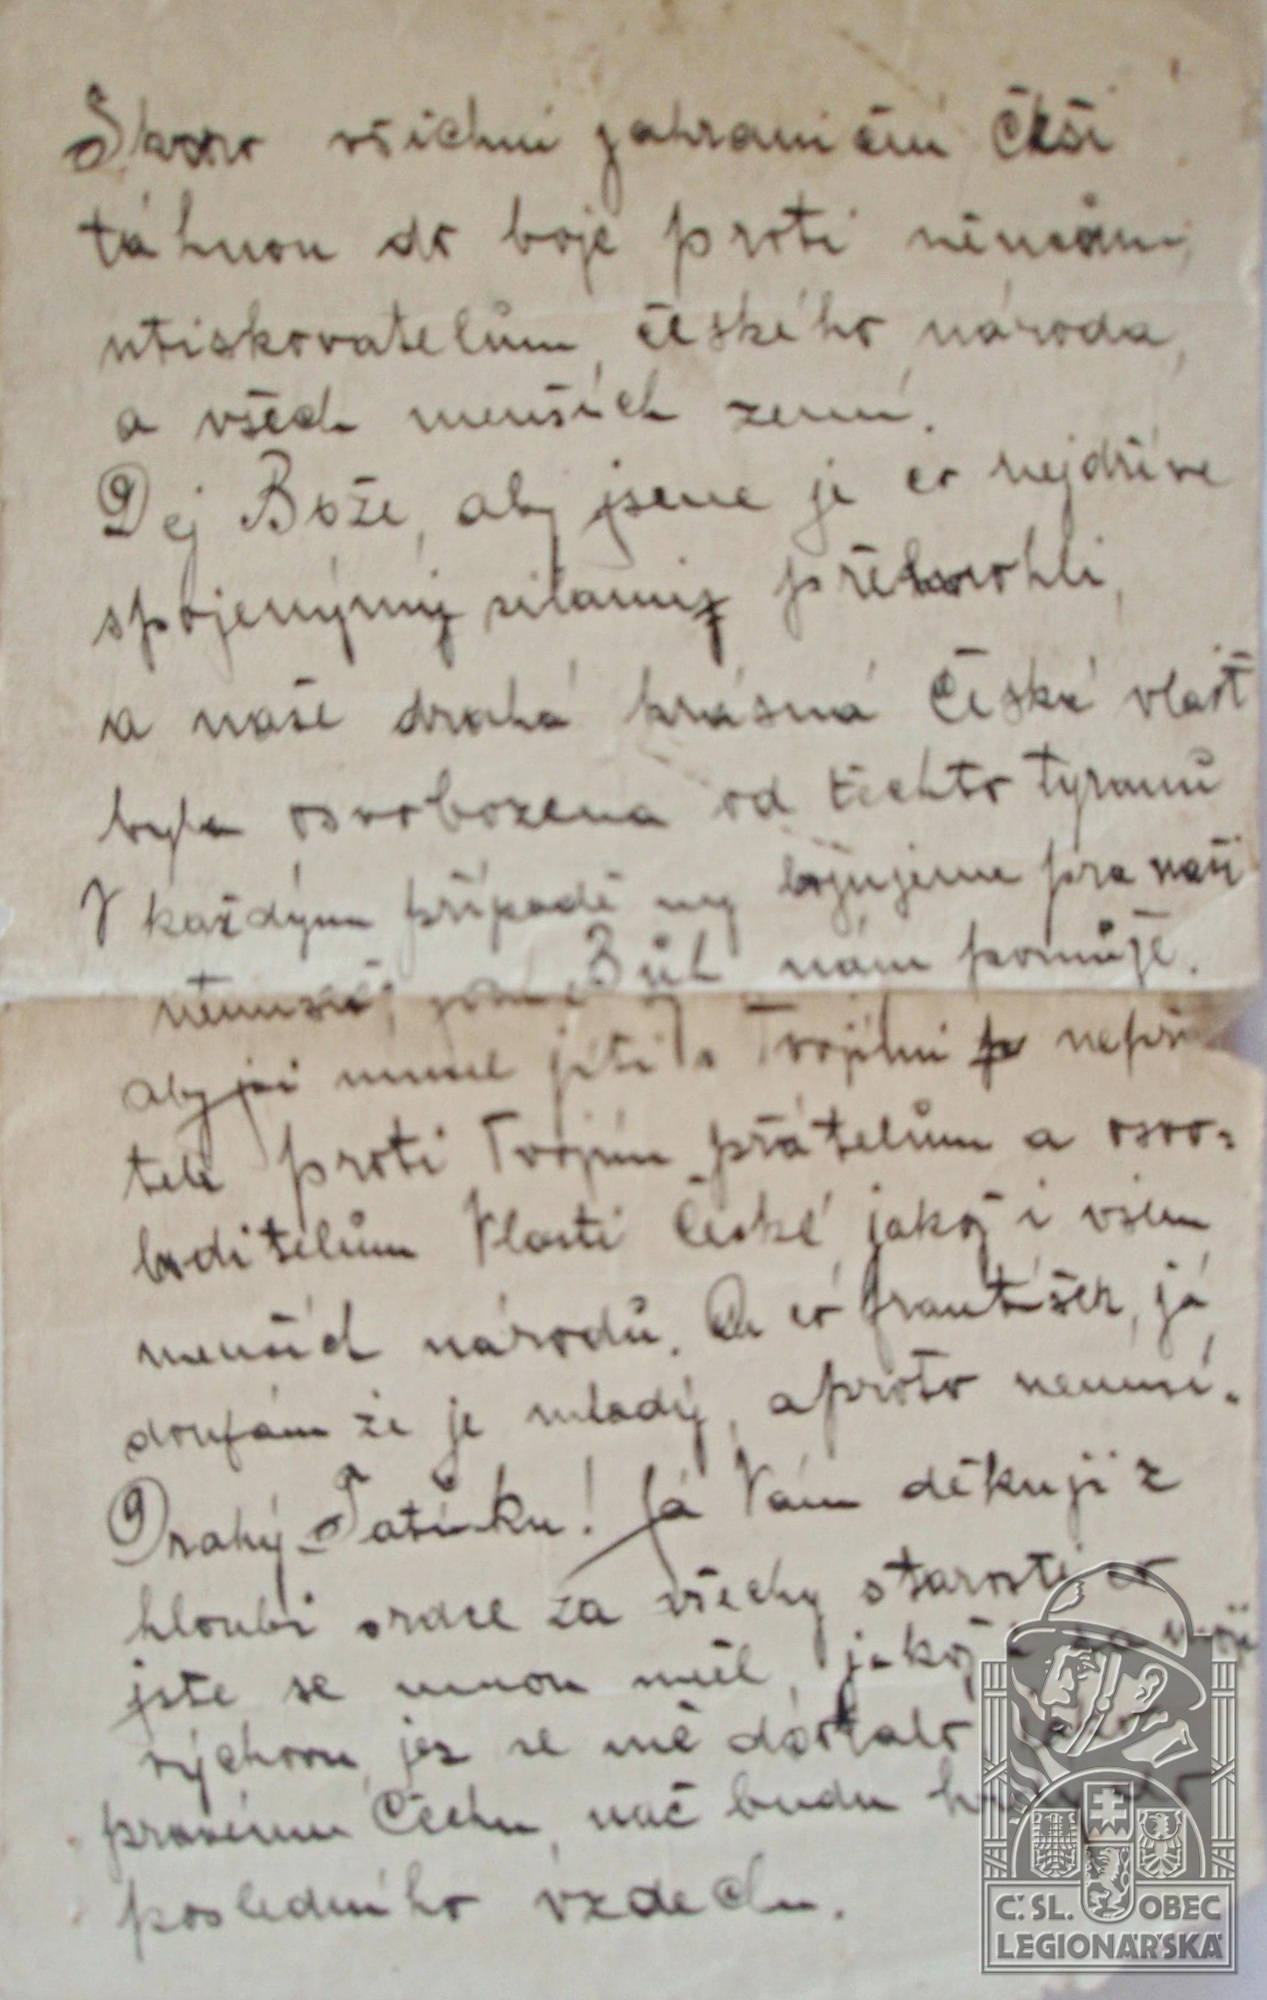 Skoro všichni zahraniční Češi
táhnou do boje proti němcům,
utiskovatelům, českého národa,
a všech menších zemí.
Dej Bože, aby jsme je co nejdříve
spojenými silami překonohli,
a naše drahá krásná Česká vlasť
byla osvobozena od těchto tyranů
V každým případě my bojujeme pra naši
nám pomůže.
aby jsi musel jíti s Tvojími nepřá
teli proti Tvojím přátelům a osvo=
boditelům Vlasti České, jakož i všem
menších národů. A co František, já
doufám že je mladý, a proto nemusí.
Drahý Tatínku! Já Vám děkuji z
hloubi srdce za všechy starosti co
jste se mnou měl, jakož i za moji
výchovu, jež se mě dostalo
pravému Čechu, nač budu
posledního vzdechu.
Č.SL. OBEC
LEGIONÁŘSKÁ